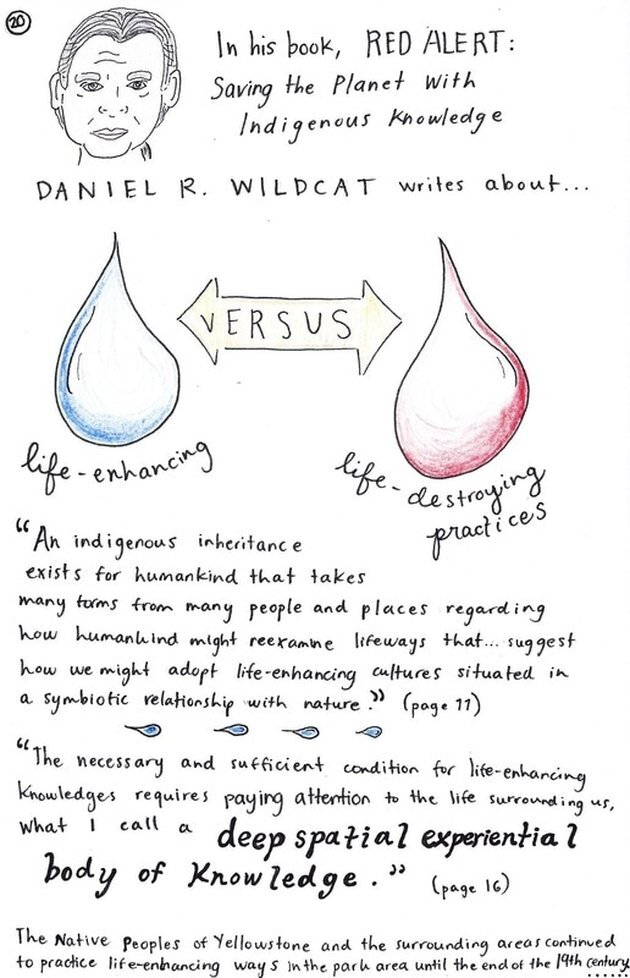 20
In his book, RED ALERT:
Saving the Planet with
Indigenous Knowledge
DANIEL R. WILDCAT writes about...
VERSUS
life-enhancing
life-destroying
practices
"An indigenous inheritance
exists for humankind that takes
many forms from many people and places regarding
how humankind might reexamine lifeways that... suggest
how we might adopt life-enhancing cultures situated in
a symbiotic relationship with nature." (page 17)
"The necessary and sufficient condition for life-enhancing
knowledges requires paying attention to the life surrounding us,
what I call a deep spatial experiential
body of knowledge." (page 16)
The Native Peoples of Yellowstone and the surrounding areas continued
to practice life-enhancing ways in the park area until the end of the 19th century......